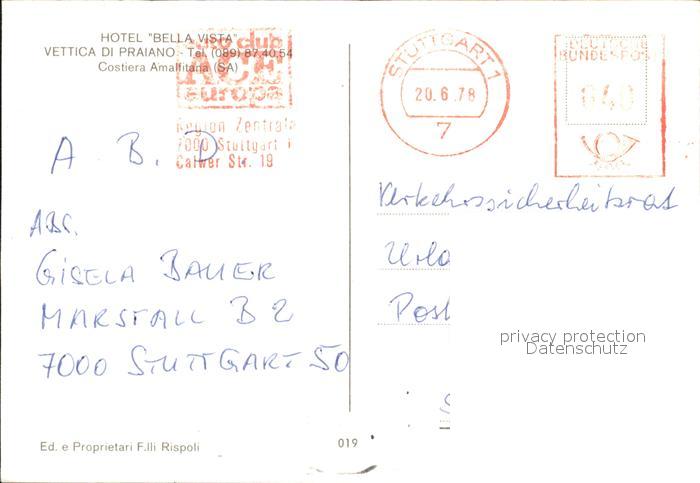 HOTEL "BELLA VISTA"
VETTICA DI PRAIANO - Tel. (089) 87.40.54
Costiera Amalfitana (SA)
auto club
ACE
europa
Region Zentrale
7000 Stuttgart 1
Calwer Str. 19
STUTTGART 1
20.6.78
7
DEUTSCHE
BUNDESPOST
040
A. B. D.
ABS.
GISELA BAUER
MARSTALL B 2
7000 STUTTGART 50
Verkehrssicherheitsrat
Urla
Post
privacy protection
Datenschutz
Ed. e Proprietari F.lli Rispoli
019